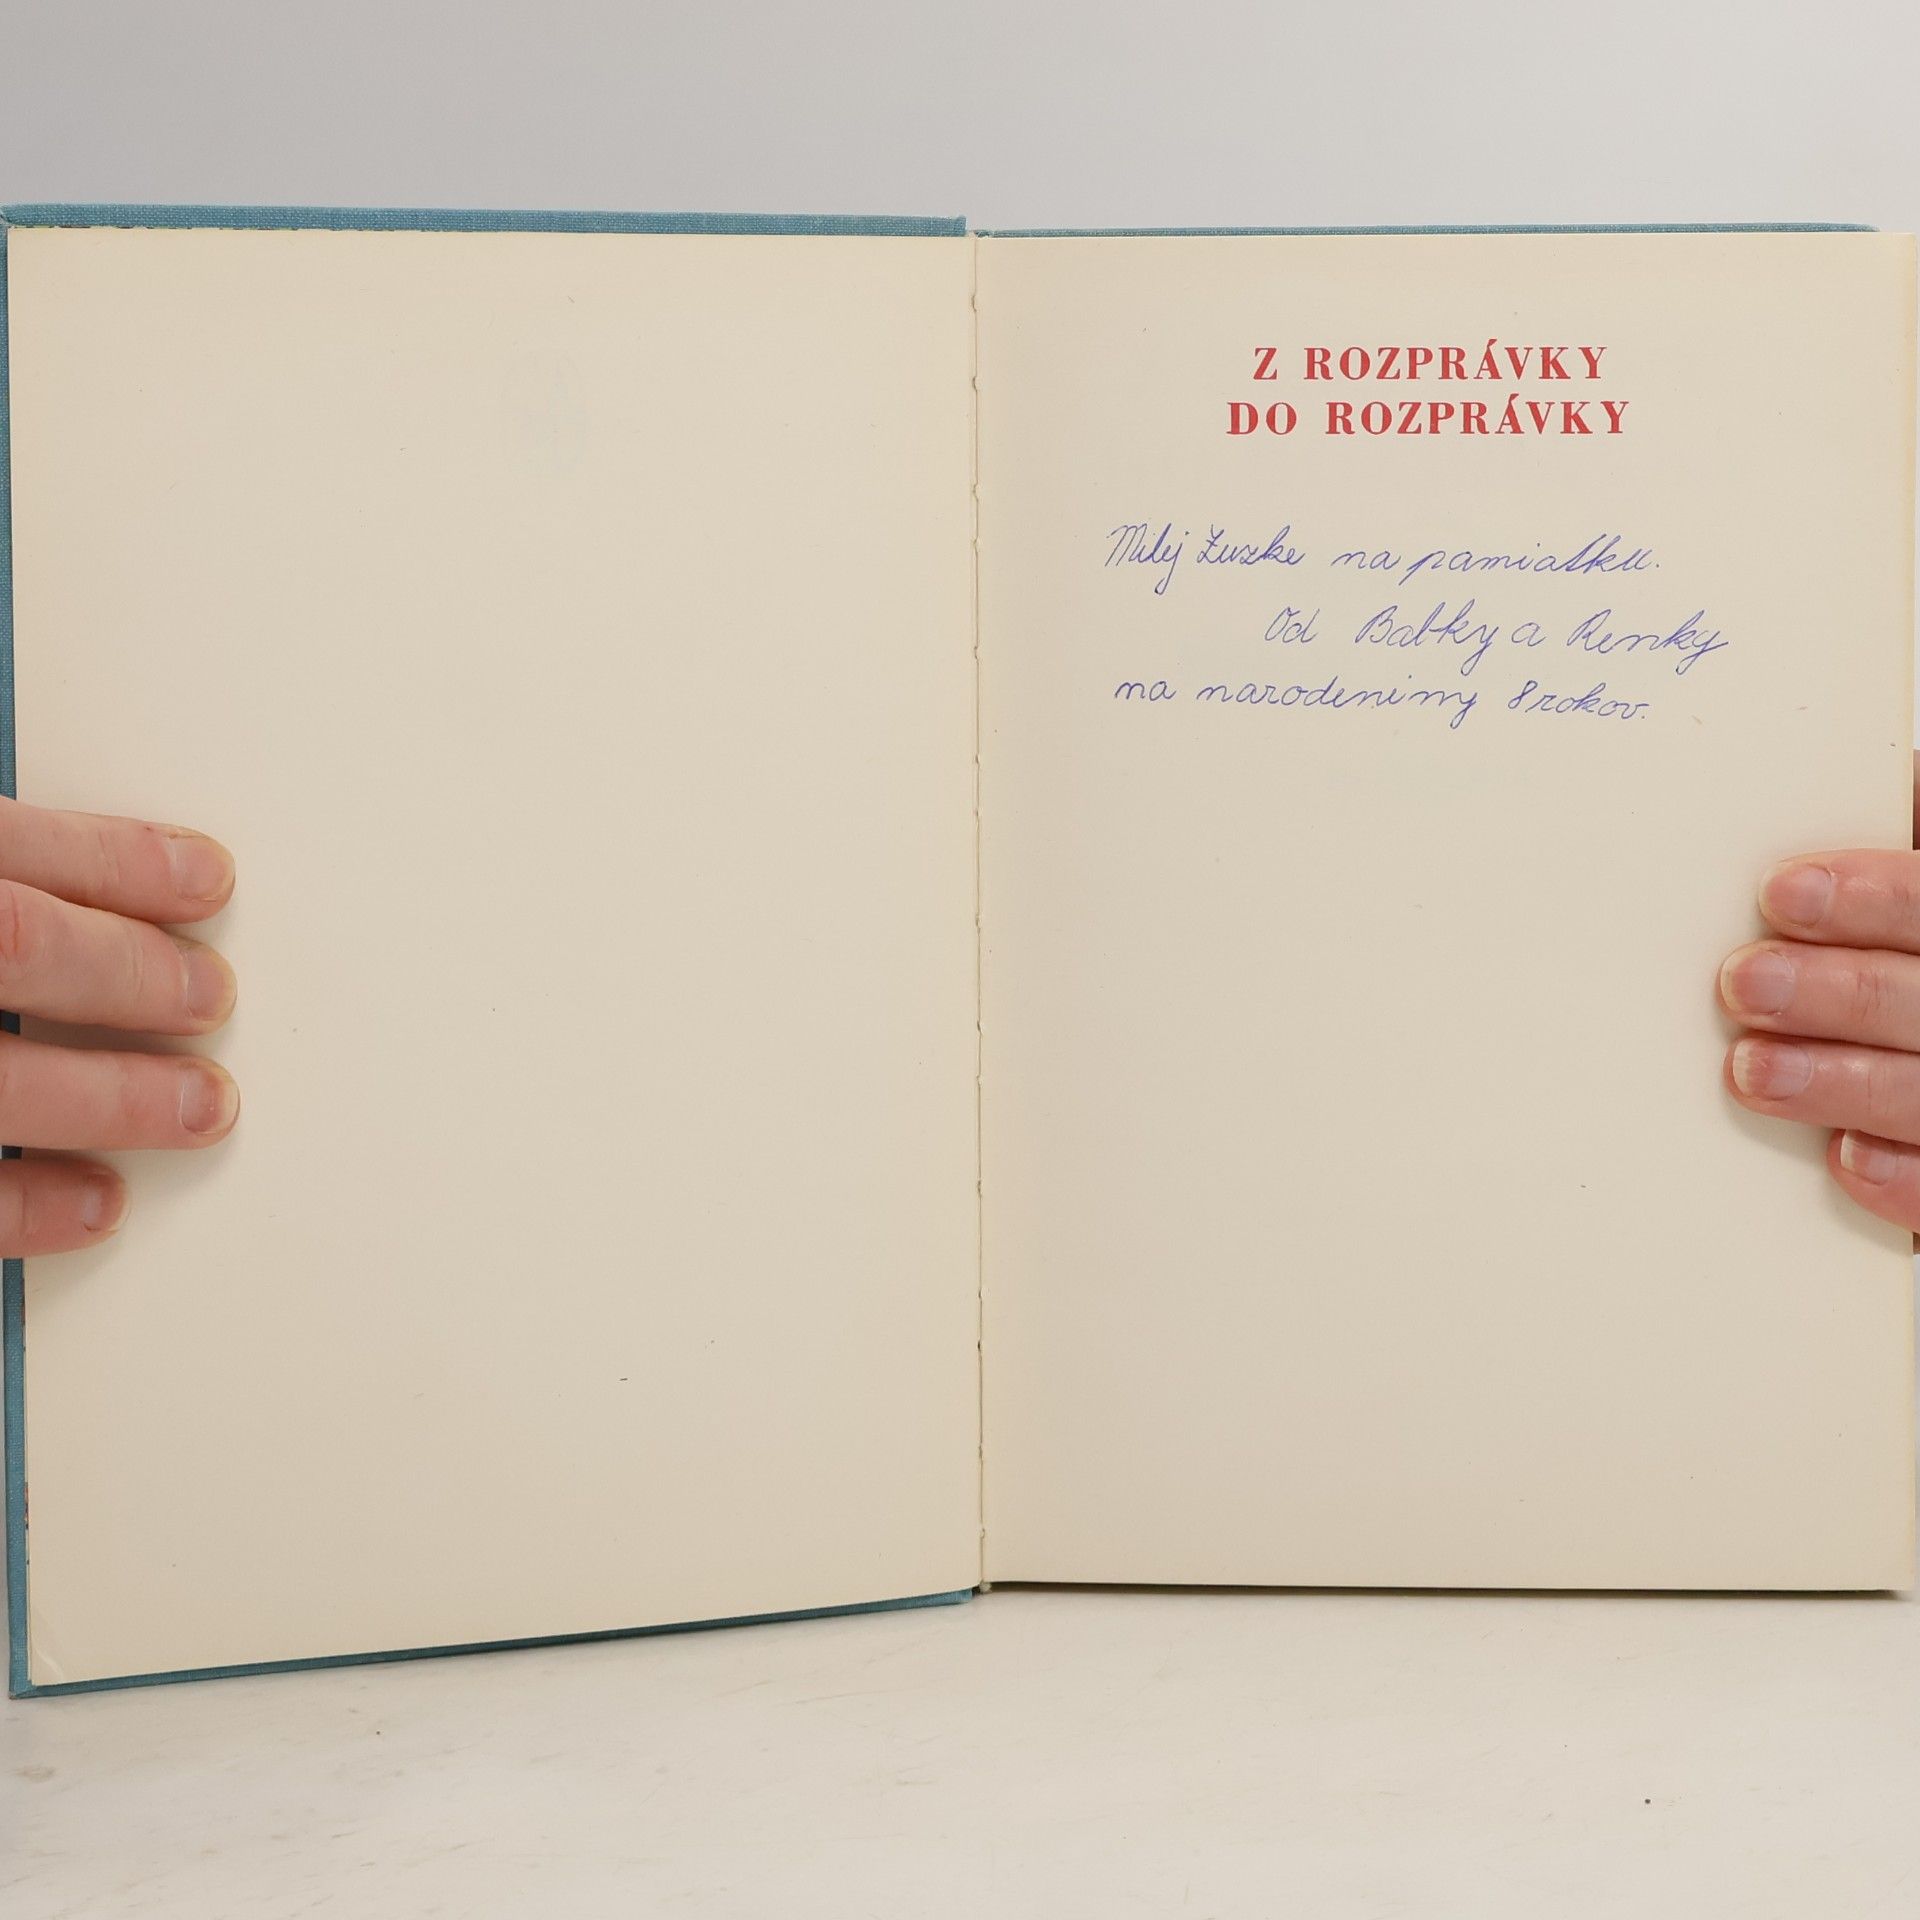 Z ROZPRÁVKY
DO ROZPRÁVKY
Milej Zuzke na pamiatku.
Od Babky a Renky
na narodeniny 8 rokov.